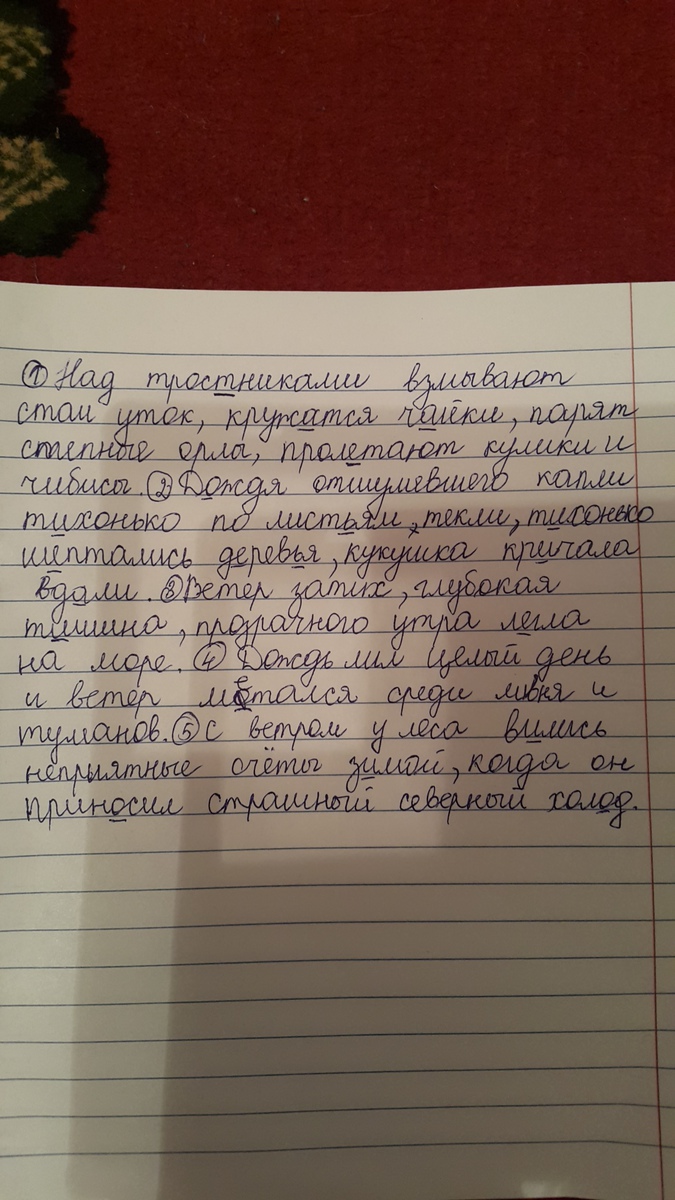 ① Над тростниками взмывают
стаи уток, кружатся чайки, парят
степные орлы, пролетают кулики и
чибисы. ② Дождя отшумевшего капли
тихонько по листьям текли, тихонько
шептались деревья, кукушка кричала
вдали. ③ Ветер затих, глубокая
тишина, прозрачного утра легла
на море. ④ Дождь лил целый день
и ветер метался среди ливня и
туманов. ⑤ С ветром у леса вились
неприятные счёты зимой, когда он
приносил страшный северный холод.